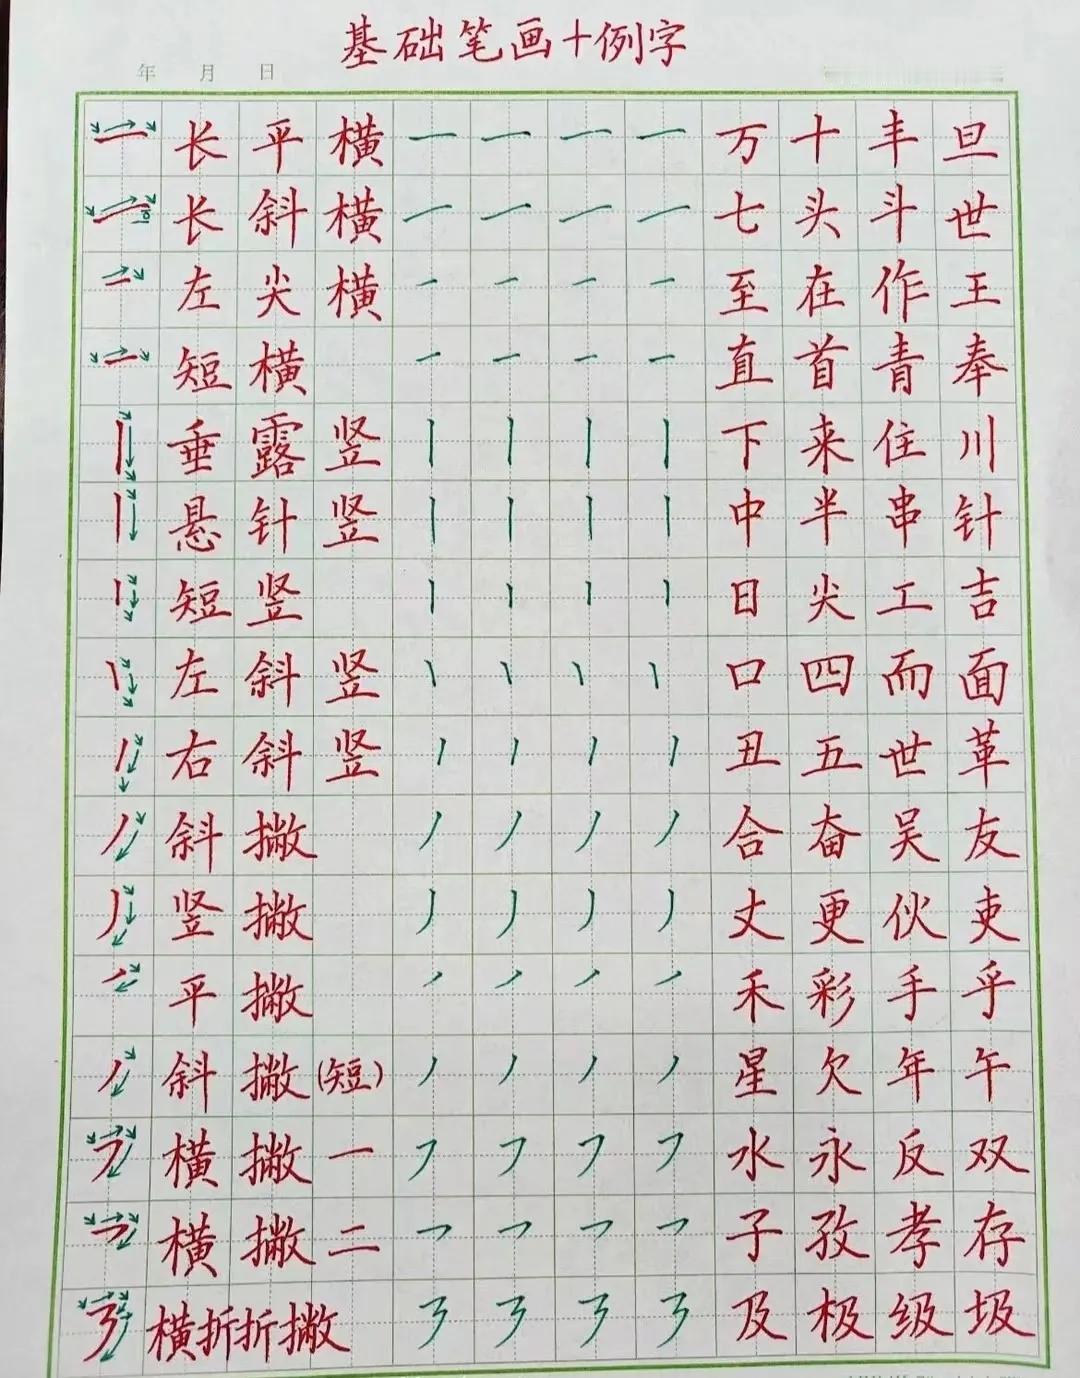 基础笔画十例字
年 月 日
一 长平横 一 一 一 一 万 十 丰 旦
一 长斜横 一 一 一 一 七 头 斗 世
一 左尖横 一 一 一 一 至 在 作 王
一 短横 一 一 一 一 直 首 青 奉
丨 垂露竖 丨 丨 丨 丨 下 来 住 川
丨 悬针竖 丨 丨 丨 丨 中 半 串 针
丨 短竖 丨 丨 丨 丨 日 尖 工 吉
丨 左斜竖 丨 丨 丨 丨 口 四 而 面
丨 右斜竖 丨 丨 丨 丨 丑 五 世 革
丿 斜撇 丿 丿 丿 丿 合 奋 吴 友
丿 竖撇 丿 丿 丿 丿 丈 更 伙 吏
丿 平撇 丿 丿 丿 丿 禾 彩 手 乎
丿 斜撇(短) 丿 丿 丿 丿 星 欠 年 午
㇇ 横撇一 ㇇ ㇇ ㇇ ㇇ 水 永 反 双
㇇ 横撇二 ㇇ ㇇ ㇇ ㇇ 子 孜 孝 存
㇋ 横折折撇 ㇋ ㇋ ㇋ ㇋ 及 极 级 圾